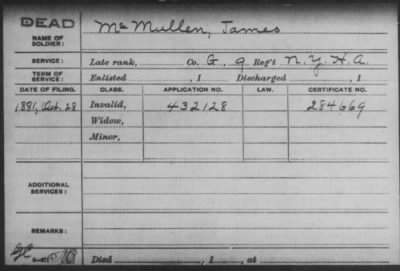 DEAD
NAME OF SOLDIER: McMullen, James
SERVICE: Late rank, Co. G, 9 Reg't N.Y.H.A.
TERM OF SERVICE: Enlisted , 1 Discharged , 1
DATE OF FILING. CLASS. APPLICATION NO. LAW. CERTIFICATE NO.
1881, Oct. 28 Invalid, 432128 284669
Widow,
Minor,
ADDITIONAL SERVICES:
REMARKS:
Died , 1 , at